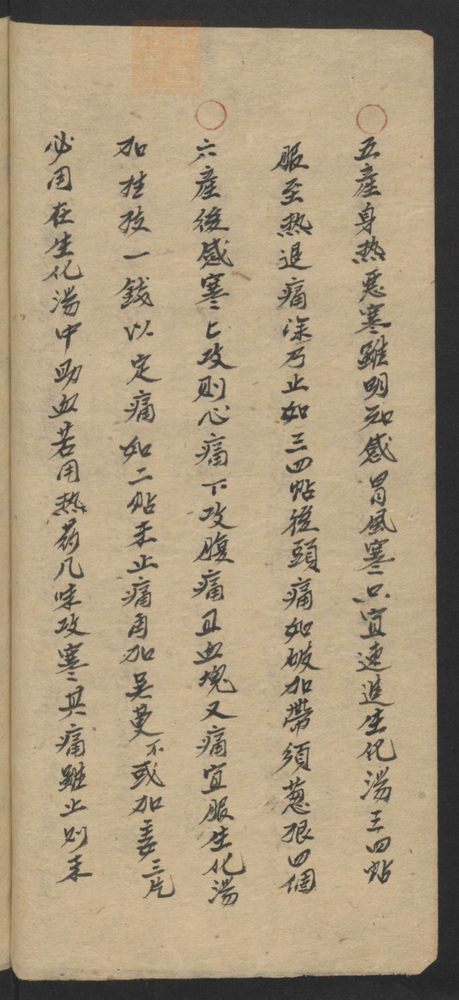 五產身熱惡寒雖明知感冒風寒只宜速進生化湯三四帖
服至熱退痛除乃止如三四帖後頭痛如破加帶須蔥根四個
六產後感寒上攻則心痛下攻腹痛且血塊又痛宜服生化湯
加桂枝一錢以定痛如二帖未止痛再加吳萸不或加姜三片
必用在生化湯中助血若用熱药几味攻寒其痛雖止則未